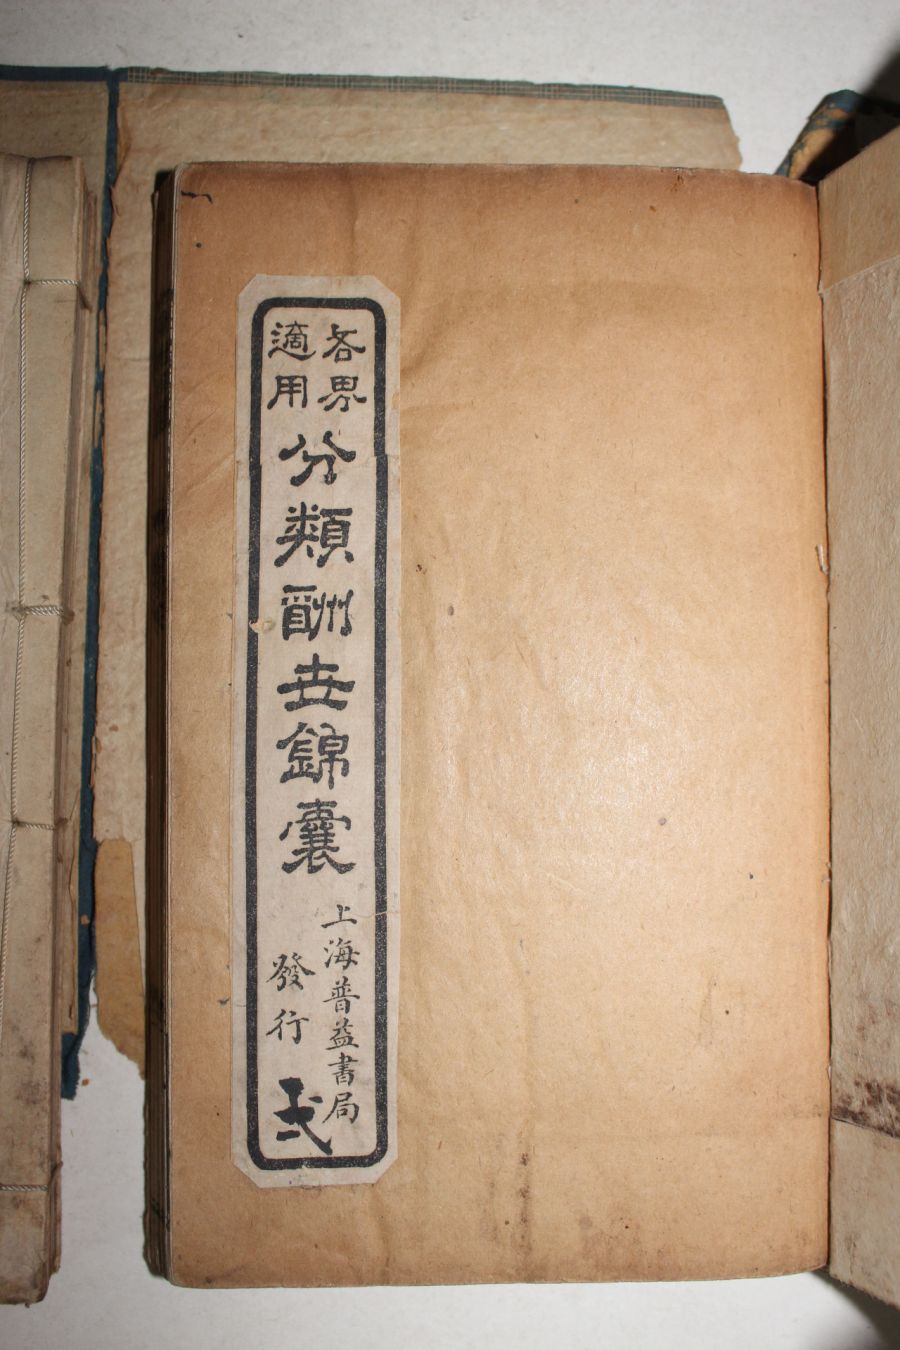 各界
適用
分類酬世錦囊
上海普益書局
發行
弍